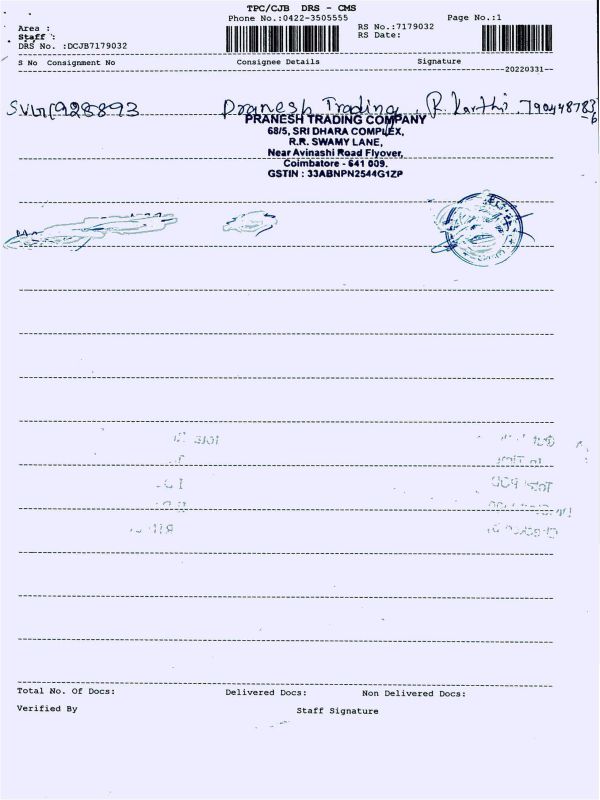 TPC/CJB DRS - CMS
Phone No.:0422-3505555
Page No.:1
Area :
Staff :
DRS No. :DCJB7179032
RS No.:7179032
RS Date:
S No Consignment No Consignee Details Signature
20220331
928893 Pranesh Trading R. Karthi
PRANESH TRADING COMPANY
68/5, SRI DHARA COMPLEX,
R.R. SWAMY LANE,
Near Avinashi Road Flyover,
Coimbatore - 641 009.
GSTIN : 33ABNPN2544G1ZP
Total No. Of Docs: Delivered Docs: Non Delivered Docs:
Verified By Staff Signature